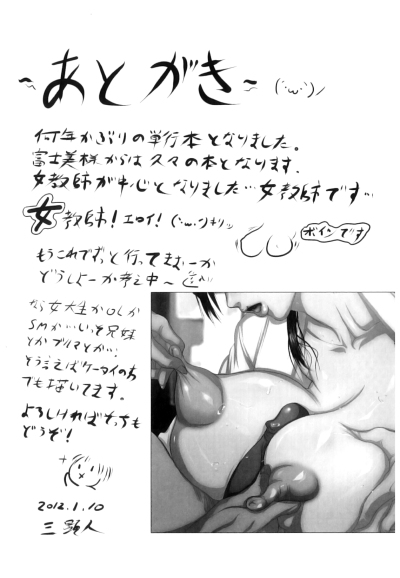 ~あとがき~ (´･ω･)ﾉ
何年かぶりの単行本となりました。
富士美様からは久々の本となります。
女教師が中心となりました…女教師です…
女教師！エロイ！(´･ω･)キリッ
ボインです
もうこれでずっと行ってまおーか
どうしよーか考え中〜
なら女子大生かOLか
SMか…いっそ兄妹
とかブルマとか…
そう言えばケータイのち
でも描いてます。
よろしければそっちも
どうぞ！
2012.1.10
三顕人